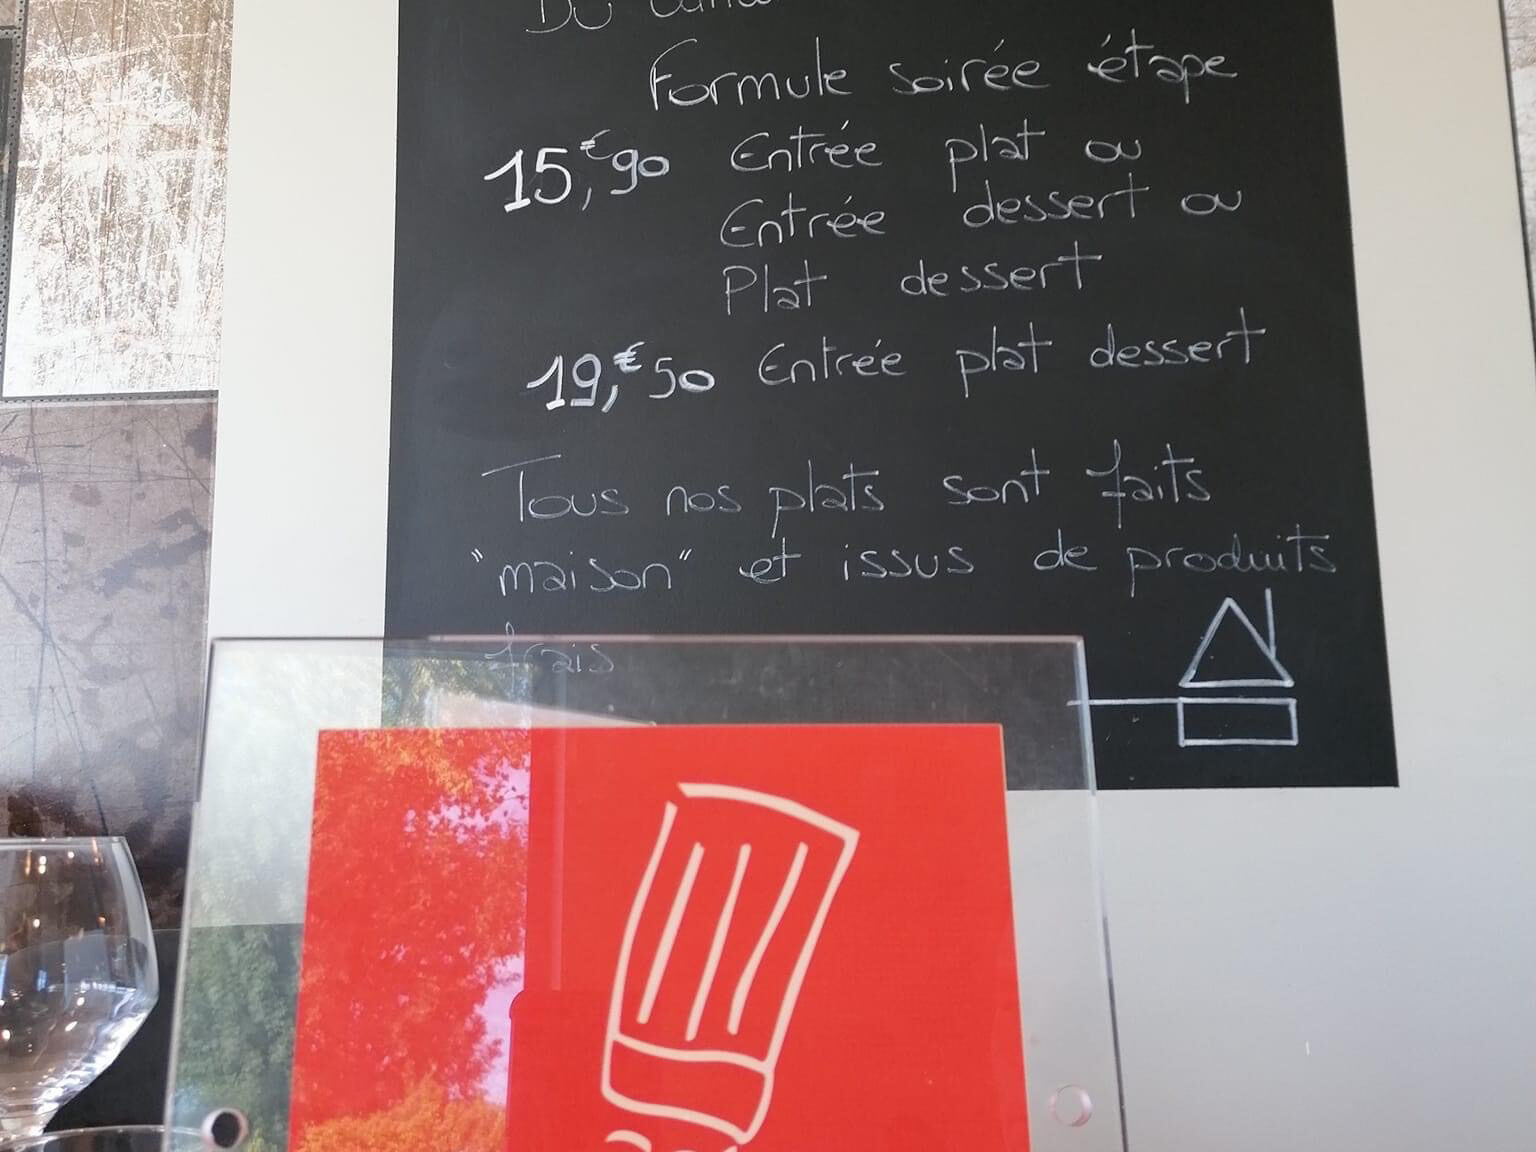 Du
Formule soirée étape
15,€90 Entrée plat ou
Entrée dessert ou
Plat dessert
19,€50 Entrée plat dessert
Tous nos plats sont faits
"maison" et issus de produits
frais